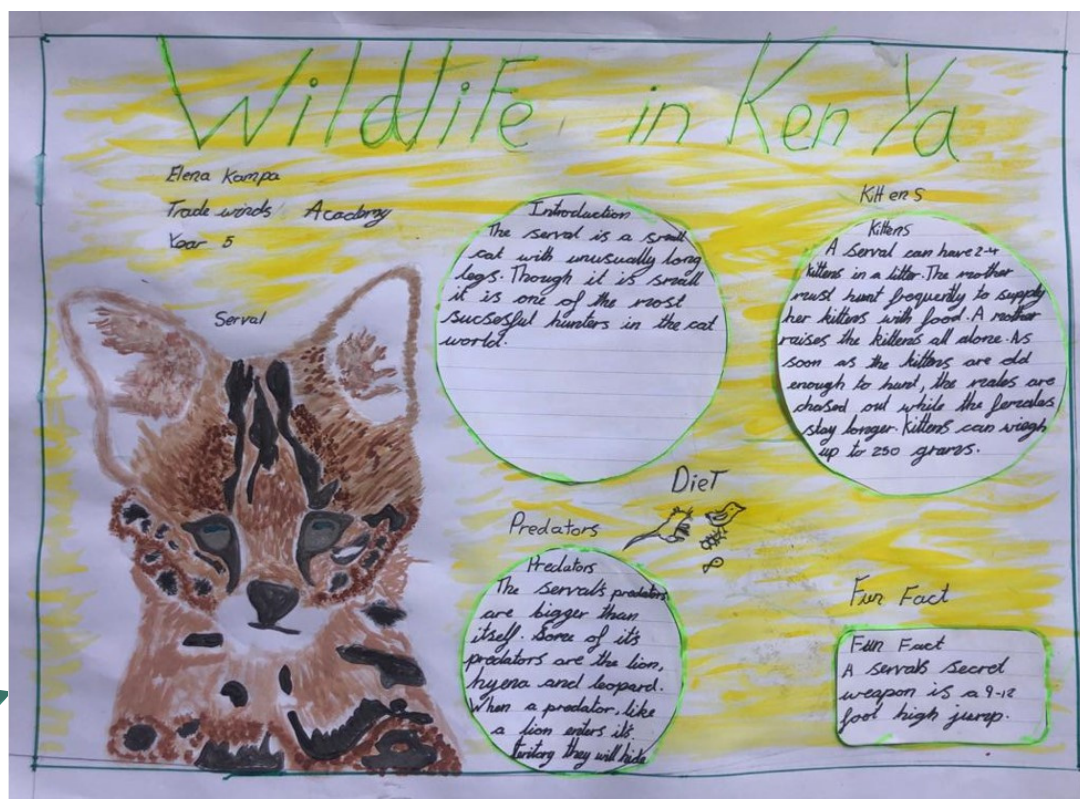 Wildlife in Ken Ya
Elena Kampa
Trade winds Academy
Year 5
Serval
Introduction
The serval is a small
cat with unusually long
legs. Though it is small
it is one of the most
sucsesful hunters in the cat
world.
Kittens
Kittens
A serval can have 2-4
kittens in a litter. The mother
must hunt frequently to supply
her kittens with food. A mother
raises the kittens all alone. As
soon as the kittens are old
enough to hunt, the males are
chased out while the females
stay longer. Kittens can wiegh
up to 250 grams.
Diet
Predators
Predators
The serval's predators
are bigger than
itself. Some of it's
predators are the lion,
hyena and leopard.
When a predator, like
a lion enters it's
teritory they will hide
Fun Fact
Fun Fact
A servals secret
weapon is a 9-12
foot high jump.